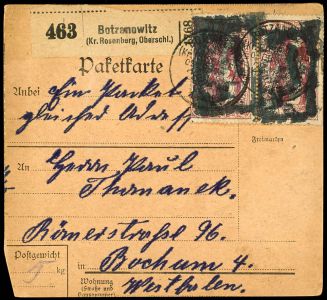 463
Botzanowitz
(Kr. Rosenberg, Oberschl.)
Paketkarte
Anbei Ein Paket
gleicher Adresse
Freimarken
An Herrn Paul
Thomanek.
Römerstraße 96.
Postgewicht
5 kg
in Bochum 4.
Wohnung
(Straße und
Westfalen.